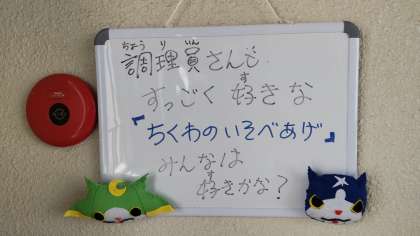 ちょうりいん
調理員さんも
すっごく好きな
『ちくわのいそべあげ』
みんなは
好きかな?